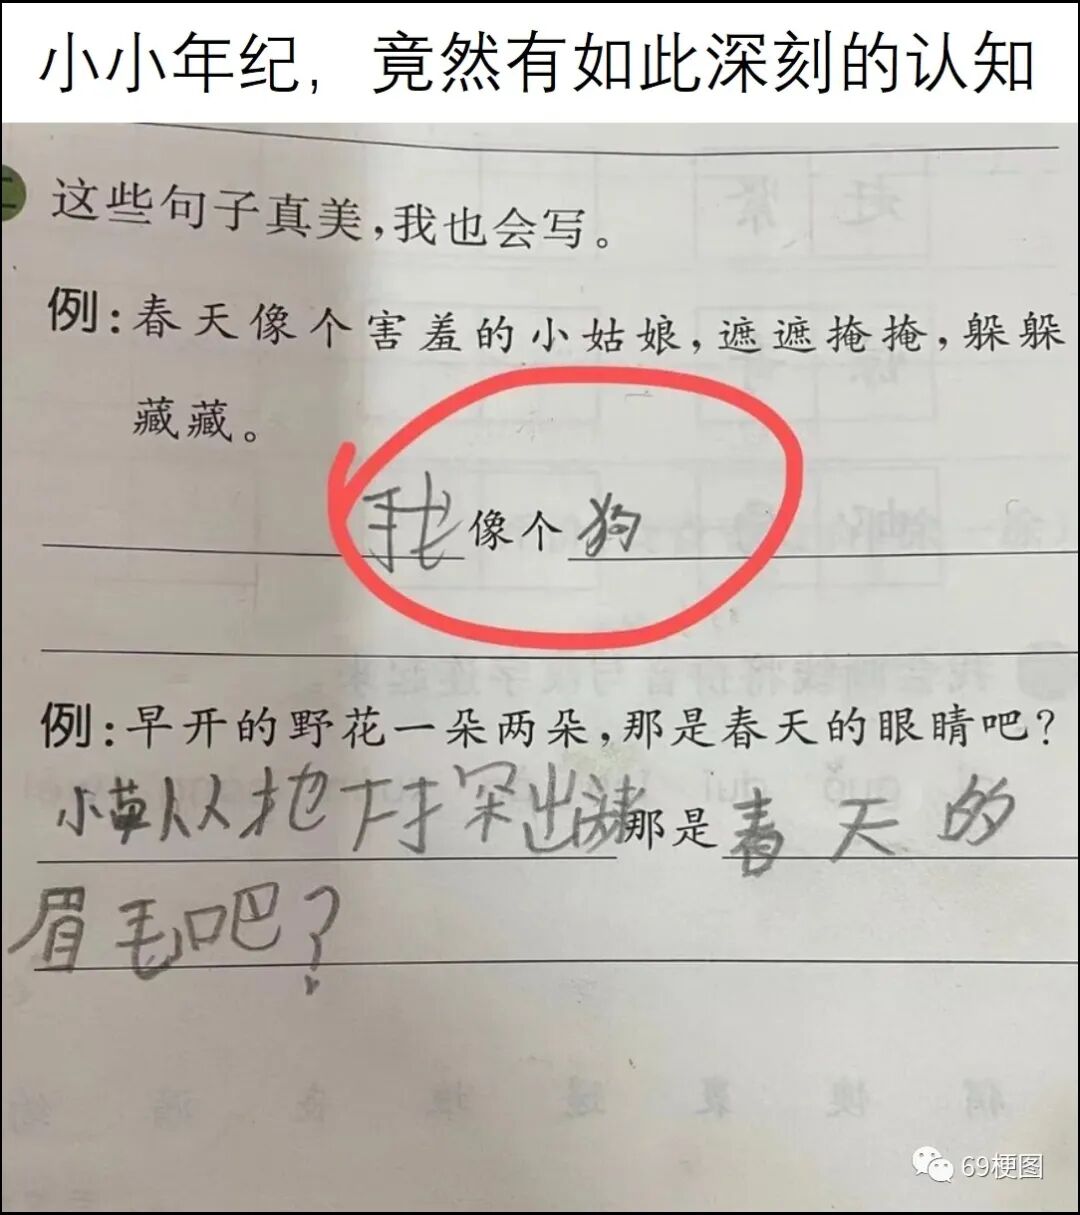 小小年纪，竟然有如此深刻的认知
这些句子真美，我也会写。
例：春天像个害羞的小姑娘，遮遮掩掩，躲躲
藏藏。
我像个狗
例：早开的野花一朵两朵，那是春天的眼睛吧？
小草从地探出那是春天的
眉毛吧？
69梗图